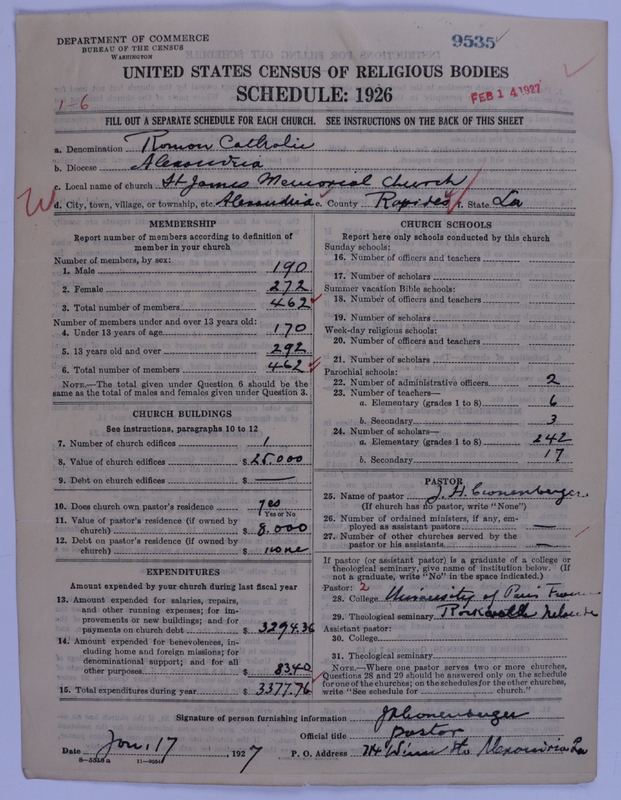 DEPARTMENT OF COMMERCE
BUREAU OF THE CENSUS
WASHINGTON
9535
UNITED STATES CENSUS OF RELIGIOUS BODIES
SCHEDULE: 1926
1-6
FEB 14 1927
FILL OUT A SEPARATE SCHEDULE FOR EACH CHURCH. SEE INSTRUCTIONS ON THE BACK OF THIS SHEET
a. Denomination Roman Catholic
b. Diocese Alexandria
c. Local name of church St James Memorial Church
d. City, town, village, or township, etc. Alexandria e. County Rapides f. State La
MEMBERSHIP
Report number of members according to definition of
member in your church
Number of members, by sex:
1. Male 190
2. Female 272
3. Total number of members 462
Number of members under and over 13 years old:
4. Under 13 years of age 170
5. 13 years old and over 292
6. Total number of members 462
NOTE.—The total given under Question 6 should be
same as the total of males and females given under Question 3.
CHURCH BUILDINGS
See instructions, paragraphs 10 to 12
7. Number of church edifices 1
8. Value of church edifices $ 25.000
9. Debt on church edifices $ —
10. Does church own pastor's residence? yes
Yes or No
11. Value of pastor's residence (if owned by
church) $ 8.000
12. Debt on pastor's residence (if owned by
church) $ none
EXPENDITURES
Amount expended by your church during last fiscal year
13. Amount expended for salaries, repairs,
and other running expenses; for im-
provements or new buildings; and for
payments on church debt $ 3294.36
14. Amount expended for benevolences, in-
cluding home and foreign missions; for
denominational support; and for all
other purposes $ 83.40
15. Total expenditures during year $ 3377.76
CHURCH SCHOOLS
Report here only schools conducted by this church
Sunday schools:
16. Number of officers and teachers
17. Number of scholars
Summer vacation Bible schools:
18. Number of officers and teachers
19. Number of scholars
Week-day religious schools:
20. Number of officers and teachers
21. Number of scholars
Parochial schools:
22. Number of administrative officers 2
23. Number of teachers—
a. Elementary (grades 1 to 8) 6
b. Secondary 3
24. Number of scholars—
a. Elementary (grades 1 to 8) 242
b. Secondary 17
PASTOR
25. Name of pastor J. H. Cronenberger
(If church has no pastor, write "None")
26. Number of ordained ministers, if any, em-
ployed as assistant pastors —
27. Number of other churches served by the
pastor or his assistants —
If pastor (or assistant pastor) is a graduate of a college or
theological seminary, give name of institution below. (If
not a graduate, write "No" in the space indicated.)
Pastor: 2
28. College University of Paris France
29. Theological seminary
Assistant pastor:
30. College
31. Theological seminary
NOTE.—Where one pastor serves two or more churches,
Questions 28 and 29 should be answered only on the schedule
for one of the churches; on the schedules for the other churches,
write "See schedule for church."
Signature of person furnishing information JH Cronenberger
Official title pastor
Date Jan. 17 1927 P. O. Address 714 Winn St. Alexandria La
8-5518a 11-9051